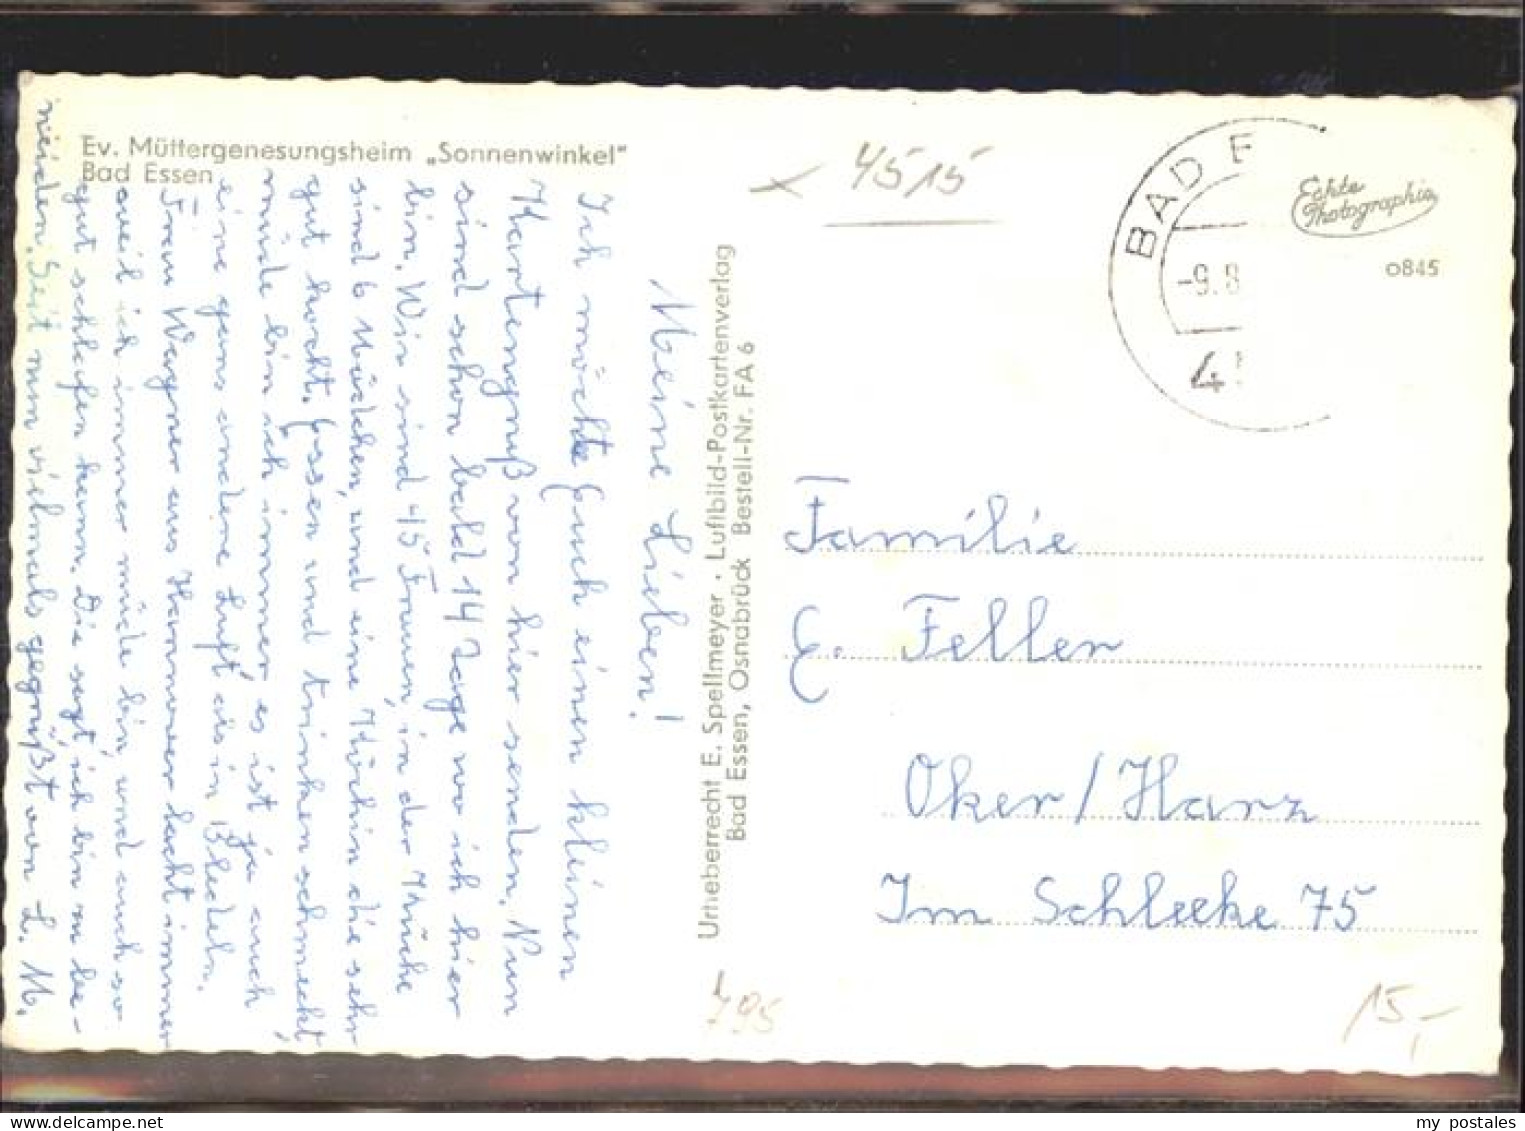 Ev. Müttergenesungsheim „Sonnenwinkel"
Bad Essen
4515
BAD E
-9.8
4
Echte
Photographie
0845
Meine Lieben!
Ich möchte Euch einen kleinen
Kartengruß von hier senden. Nun
sind schon bald 14 Tage wo ich hier
bin. Wir sind 45 Frauen, in der Küche
sind 6 Mädchen, und eine Köchin die sehr
gut kocht. Essen und trinken schmeckt
müde bin ich immer, es ist ja auch
eine ganz andere Luft als in Bledeln.
Frau Wagner aus Hannover lacht immer
weil ich immer müde bin, und auch so
gut schlafen kann. Die sagt ich bin zu be-
neiden. Seit nun vielmals gegrüßt von L. M.
Urheberrecht E. Spellmeyer · Luftbild-Postkartenverlag
Bad Essen, Osnabrück Bestell-Nr. FA 6
Familie
E. Feller
Oker/Harz
Im Schleeke 75
795
15,-
my postales